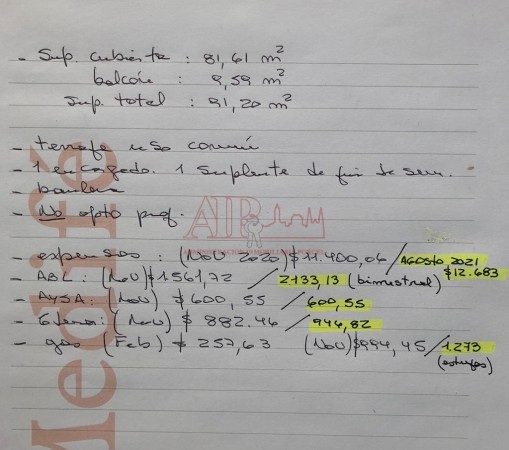 - Sup. cubierta : 81,61 m²
balcón : 9,59 m²
Sup. total : 91,20 m²
- terraza uso común
- 1 encargado. 1 suplente de fin de sem.
- baulera
- No apto prof.
AIB
- expensas : (Nov 2020) $ 11.400,06 / AGOSTO 2021 $12.683
- ABL : (Nov) $1561,72 / 2133,13 (bimestral)
- AYSA : (Nov) $ 600,55 / 600,55
- (Nov) $ 882.46 / 946,82
- gas (Feb) $ 257,63 (Nov) $994,45 / 1.273
(estufas)
Medifé